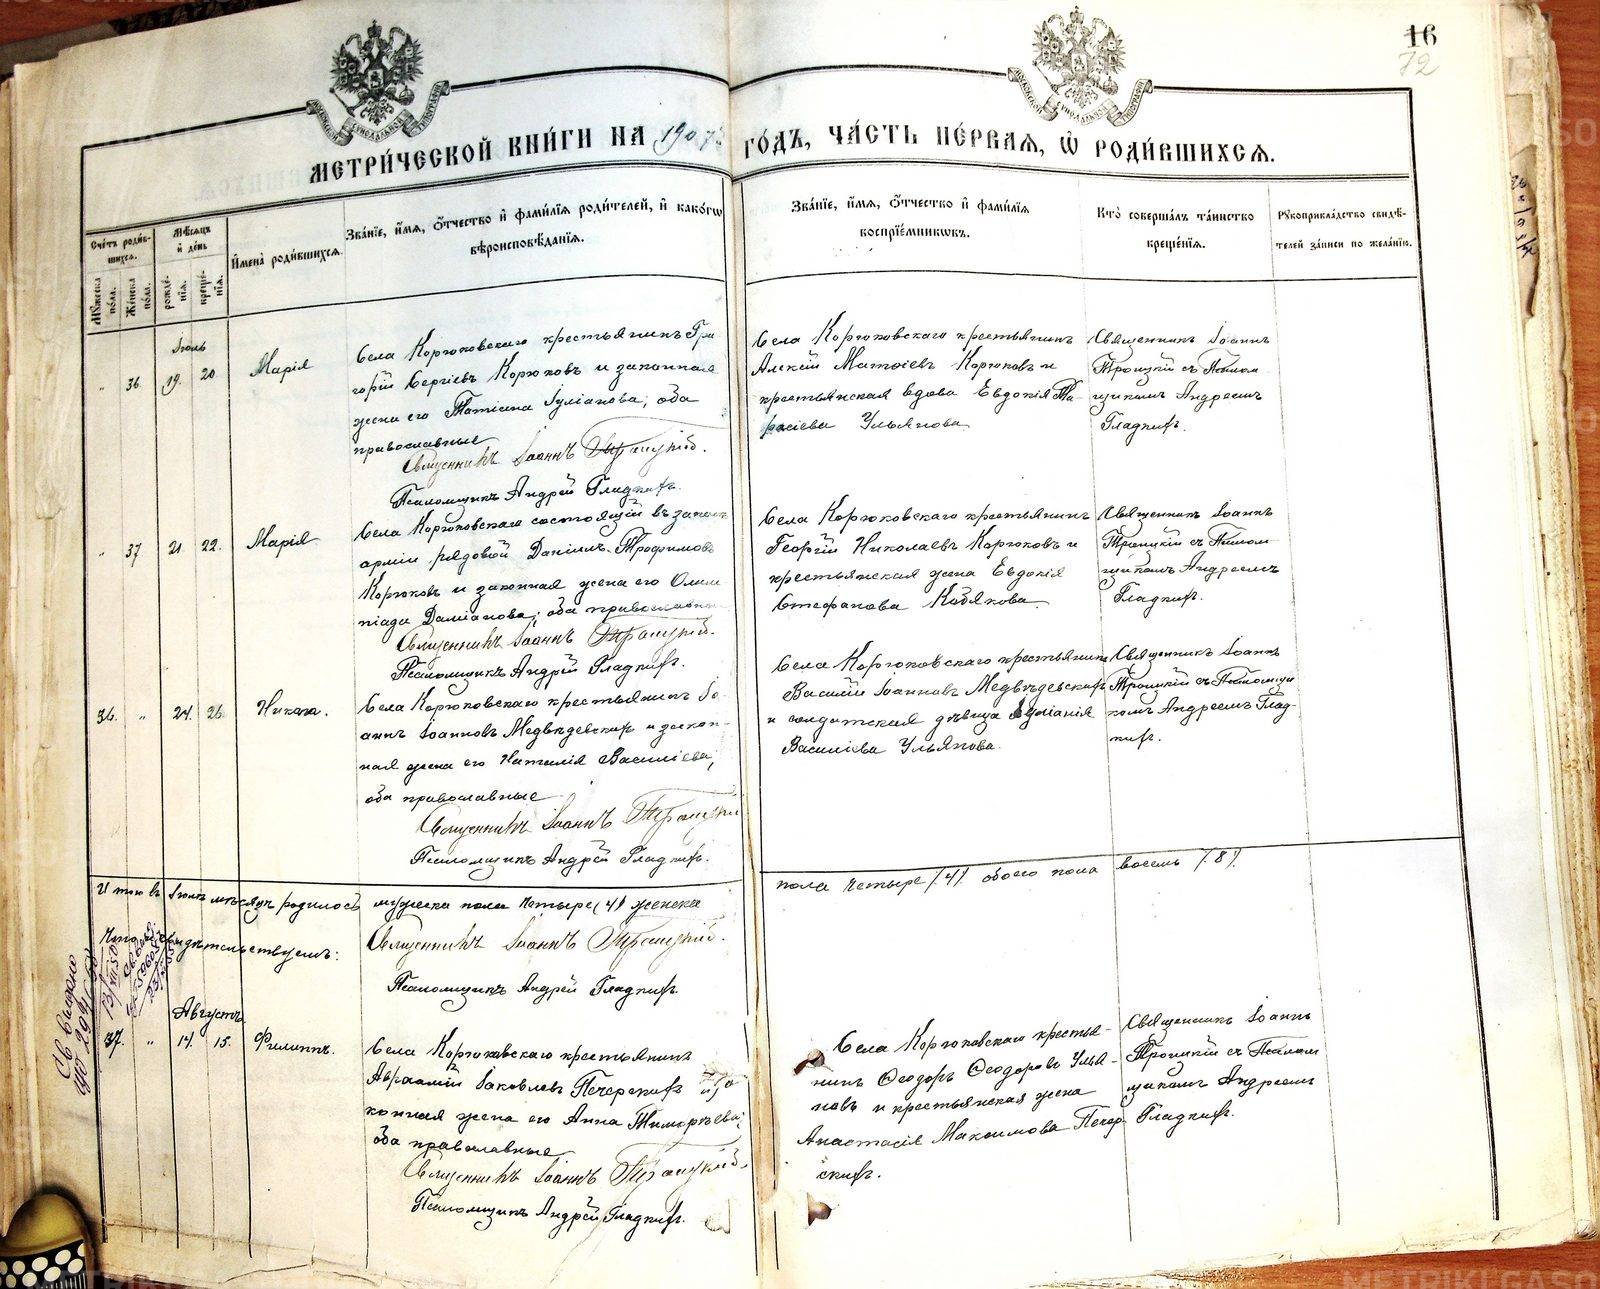 16
72
МЕТРИ́ЧЕСКОЙ КНИ́ГИ НА 1907й ГО́ДЪ, ЧА́СТЬ ПЕ́РВАЯ, Ѡ РОДИ́ВШИХСЯ.
Сче́тъ роди́вшихся.
Му́жеска по́ла.
Же́нска по́ла.
Мѣ́сяцъ и де́нь
рожде́нія.
креще́нія.
Имена̀ роди́вшихся.
Зва́ніе, и́мя, о́тчество и фами́лія роди́телей, и како́гѡ
вѣроисповѣ́данія.
Зва́ніе, и́мя, о́тчество и фами́лія
воспріе́мниковъ.
Кто̀ соверша́лъ та́инство
креще́нія.
Рукоприкла́дство свидѣ́-
телей за́писи по жела́нію.
Іюль
" 36 19. 20 Марія
Села Корюковскаго крестьянинъ Гри
горій Сергіевъ Корюковъ и законная
жена его Татіана Іуліанова; оба
православные
Священникъ Іоаннъ Троицкій.
Псаломщикъ Андрей Гладкихъ.
Села Корюковскаго крестьянинъ
Алексій Матѳіевъ Корюковъ и
крестьянская вдова Евдокія Та-
расіева Ульянова
Священникъ Іоаннъ
Троицкій съ Псалом
щикомъ Андреемъ
Гладкихъ.
" 37 21 22. Марія
Села Корюковскаго состоящій въ запасѣ
арміи рядовой Даніилъ Трофимовъ
Корюковъ и законная жена его Олим
піада Даміанова; оба православные
Священникъ Іоаннъ Троицкій.
Псаломщикъ Андрей Гладкихъ.
Села Корюковскаго крестьянинъ
Георгій Николаевъ Корюковъ и
крестьянская жена Евдокія
Стефанова Кобякова
Священникъ Іоаннъ
Троицкій съ Псалом-
щикомъ Андреемъ
Гладкихъ.
36. " 24. 26.
Села Корюковскаго крестьянинъ Іо
аннъ Іоанновъ Медвѣдевскихъ и закон-
ная жена его Наталія Василіева;
оба православные
Священникъ Іоаннъ Троицкій
Псаломщикъ Андрей Гладкихъ.
Села Корюковскаго крестьянинъ
Василій Іоанновъ Медвѣдевскихъ
и солдатская дѣвица Іуліанія
Василіева Ульянова.
Священникъ Іоаннъ
Троицкій съ Псаломщи
комъ Андреемъ Глад-
кихъ.
Итого въ Іюлѣ мѣсяцѣ родилось мужеска пола четыре (4) женска пола четыре (4) обоего пола восемь (8).
Что и свидѣтельствуемъ:
Священникъ Іоаннъ Троицкій.
Псаломщикъ Андрей Гладкихъ
Августъ
37. " 14. 15. Филиппъ.
Села Корюковскаго крестьянинъ
Авраамій Іаковлевъ Печерскихъ и за
конная жена его Анна Тимоѳеева;
оба православные
Священникъ Іоаннъ Троицкій.
Псаломщикъ Андрей Гладкихъ.
Села Корюковскаго крестья-
нинъ Ѳеодоръ Ѳеодоровъ Улья-
новъ и крестьянская жена
Анастасія Максимова Печер-
скихъ.
Священникъ Іоаннъ
Троицкій съ Псалом
щикомъ Андреемъ
Гладкихъ.
METRIKI.GASO